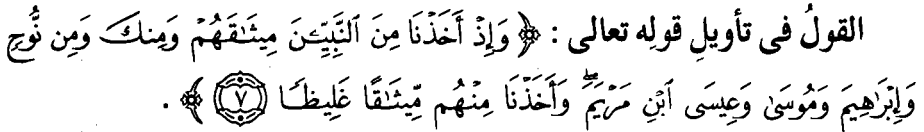 القولُ فى تأويلِ قولِه تعالى : ﴿ وَإِذْ أَخَذْنَا مِنَ ٱلنَّبِيِّـۧنَ مِيثَـٰقَهُمْ وَمِنكَ وَمِن نُّوحٍ
وَإِبْرَٰهِيمَ وَمُوسَىٰ وَعِيسَى ٱبْنِ مَرْيَمَ ۖ وَأَخَذْنَا مِنْهُم مِّيثَـٰقًا غَلِيظًا ﴿٧﴾ ﴾ .